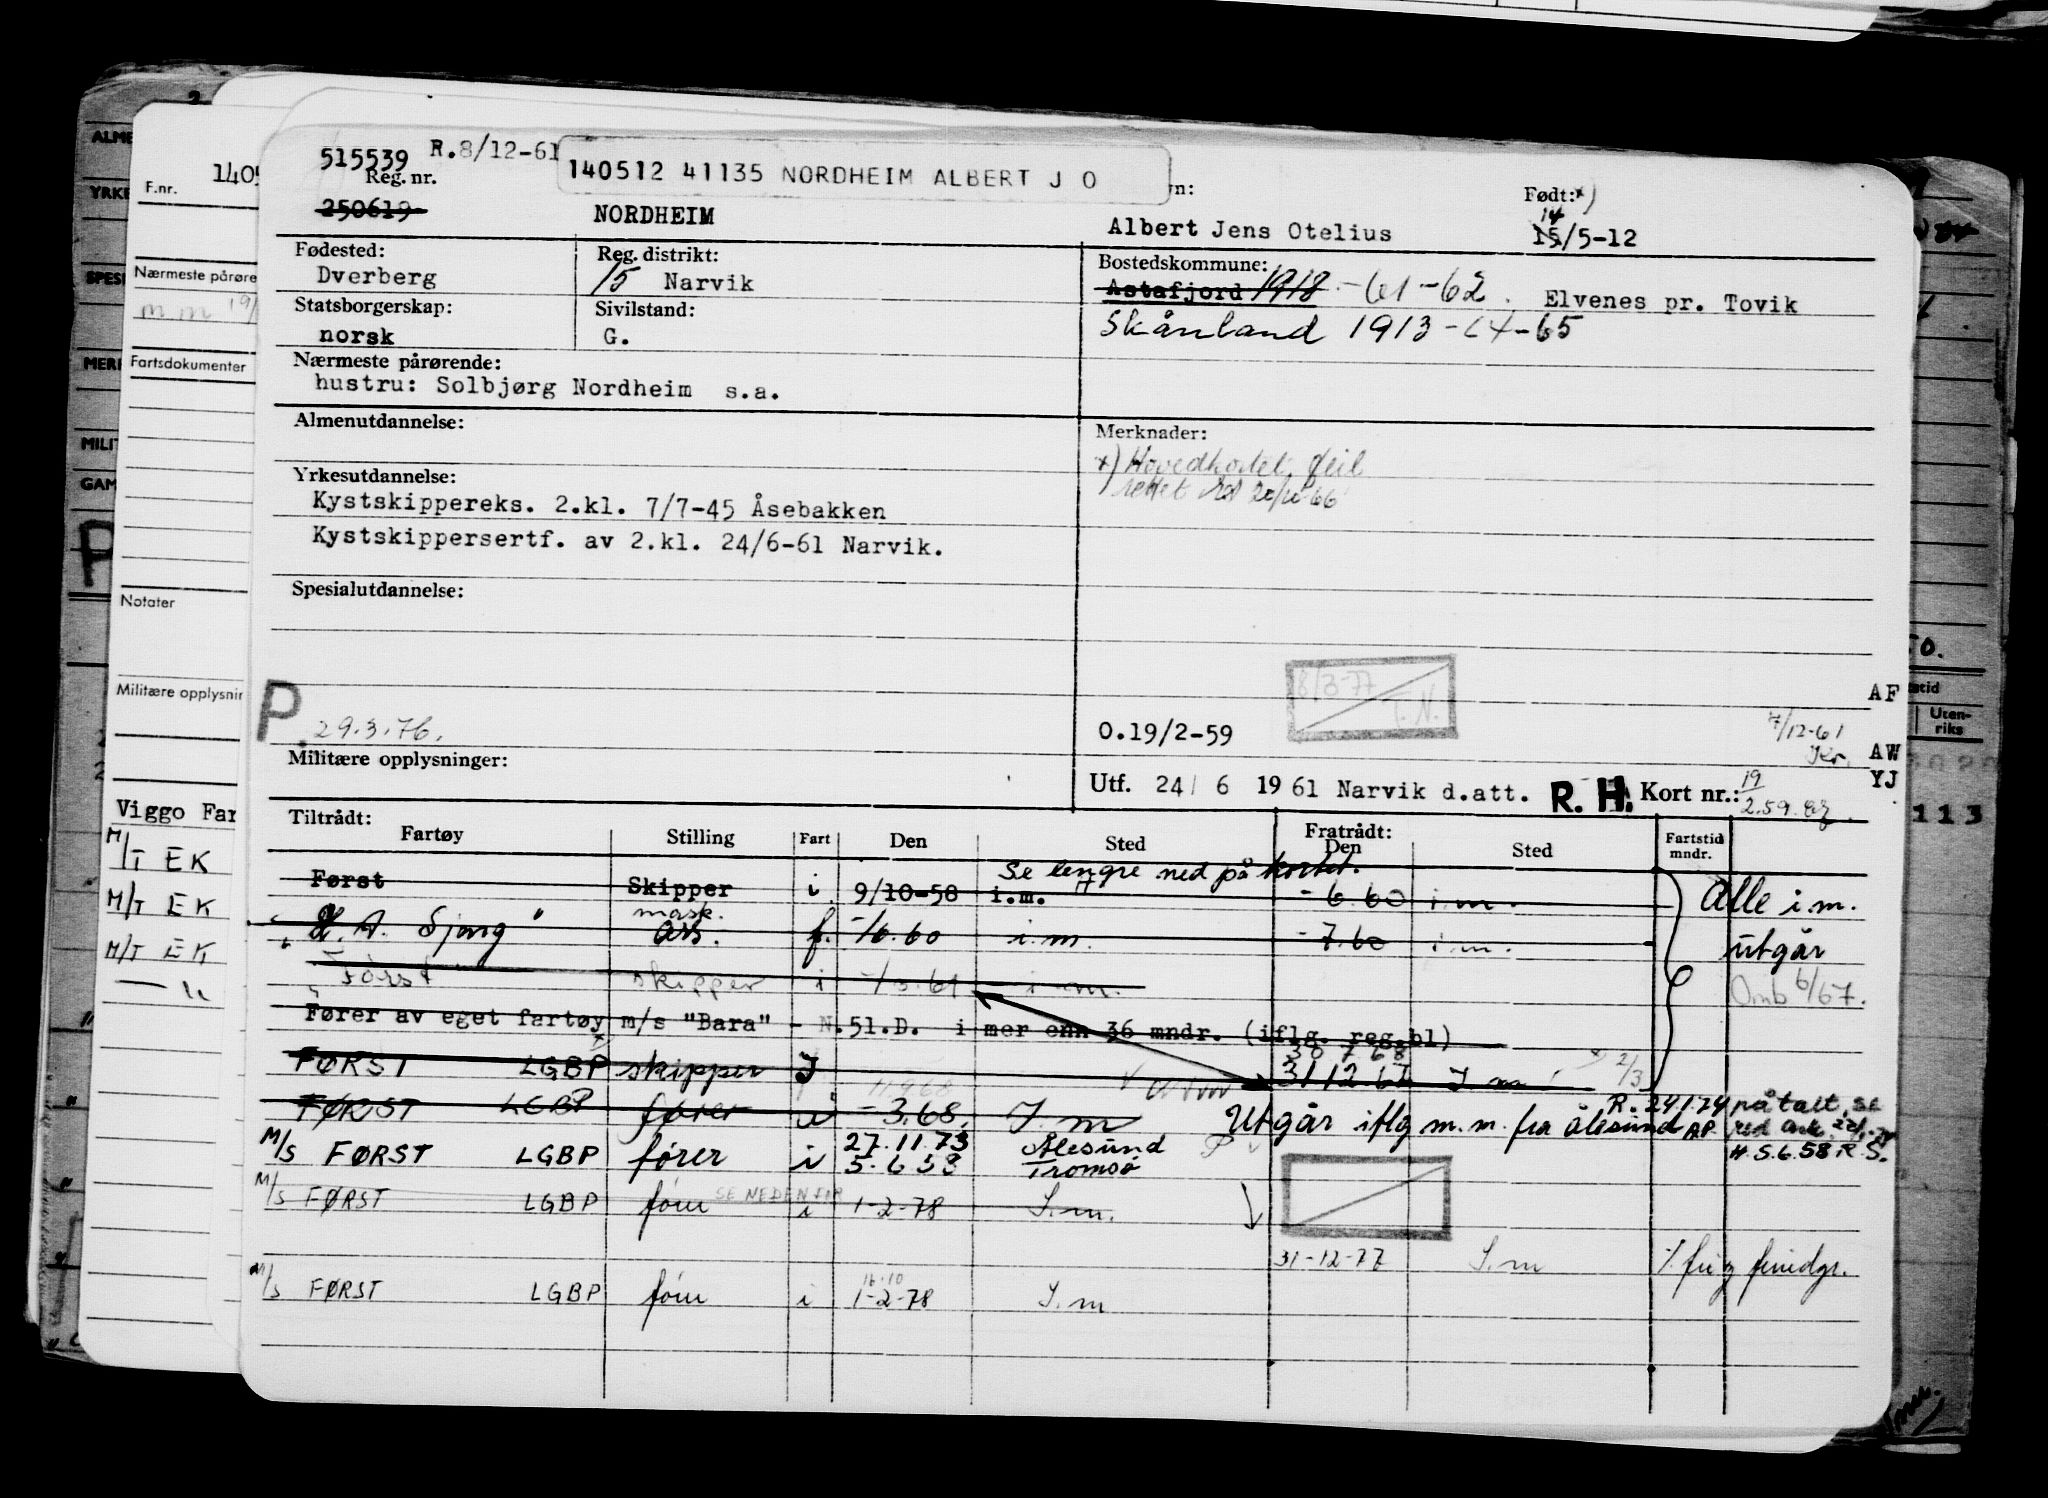 515539 R.8/12-61
Reg. nr.
140512 41135 NORDHEIM ALBERT J O
250619
NORDHEIM
vn:
Albert Jens Otelius
Født: x)
14
15/5-12
Fødested:
Dverberg
Reg. distrikt:
15 Narvik
Bostedskommune:
Astafjord 1918 -61-62. Elvenes pr. Tovik
Skånland 1913-64-65
Statsborgerskap:
norsk
Sivilstand:
G.
Nærmeste pårørende:
hustru: Solbjørg Nordheim s.a.
Almenutdannelse:
Merknader:
x) Hovedkortet feil
rettet
Yrkesutdannelse:
Kystskippereks. 2.kl. 7/7-45 Åsebakken
Kystskippersertf. av 2.kl. 24/6-61 Narvik.
Spesialutdannelse:
P
29.3.76.
8/3-77
T.N.
O.19/2-59
7/12-61
Militære opplysninger:
Utf. 24/ 6 19 61 Narvik d.att. R. H. Kort nr.: 19/2.59.
AF
AW
YJ
Tiltrådt:
Fartøy Stilling Fart Den Sted
Fratrådt:
Den Sted
Fartstid
mndr.
Se lengre ned på kortet.
Først Skipper i 9/10-58 i.m. - 6.60 i.m. Alle i.m.
mask.
ass. f. -/6.60 i.m. - 7.60 i.m. utgår
"Først" skipper i i.m. Omb 6/67.
Fører av eget fartøy m/s "Bara" - N.51.D. i mer enn 36 mndr. (iflg. reg.bl)
30 7 68
FØRST LGBP skipper I 31 12 67 I.m. 2/3
FØRST LGBP fører i -3.68. I.m Utgår iflg m.m. fra Ålesund
R. 24/1.74 påtalt, se
M/S FØRST LGBP fører i 27.11.73 Ålesund
5.6 58 Tromsø
H. 5.6.58 R.S.
M/S FØRST LGBP fører SE NEDENFOR i 1-2-78 I.m.
31-12-77 I.m
M/S FØRST LGBP fører i 16.10
1-2-78 I.m
F.nr. 1405
Nærmeste pårøre
Fartsdokumenter
Notater
Militære opplysnin
Viggo Far
M/T EK
M/T EK
M/T EK
— " —
ALME
YRKE
SPESI
MERK
MILIT
GAM
P
50.
stid
Uten-
riks
113